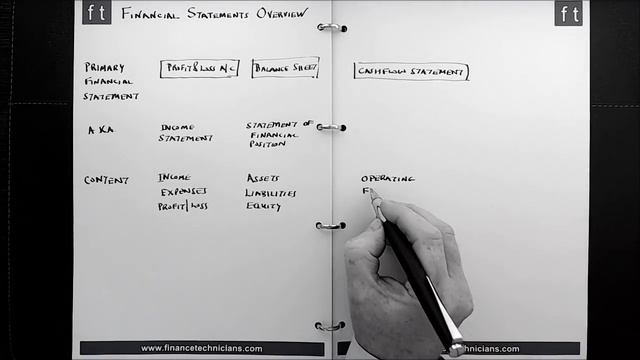 ft
FINANCIAL STATEMENTS OVERVIEW
ft
PRIMARY
FINANCIAL
STATEMENT
PROFIT & LOSS A/C
BALANCE SHEET
CASHFLOW STATEMENT
A.K.A.
INCOME
STATEMENT
STATEMENT OF
FINANCIAL
POSITION
CONTENT
INCOME
EXPENSES
PROFIT/LOSS
ASSETS
LIABILITIES
EQUITY
OPERATING
F
www.financetechnicians.com
technicians.com